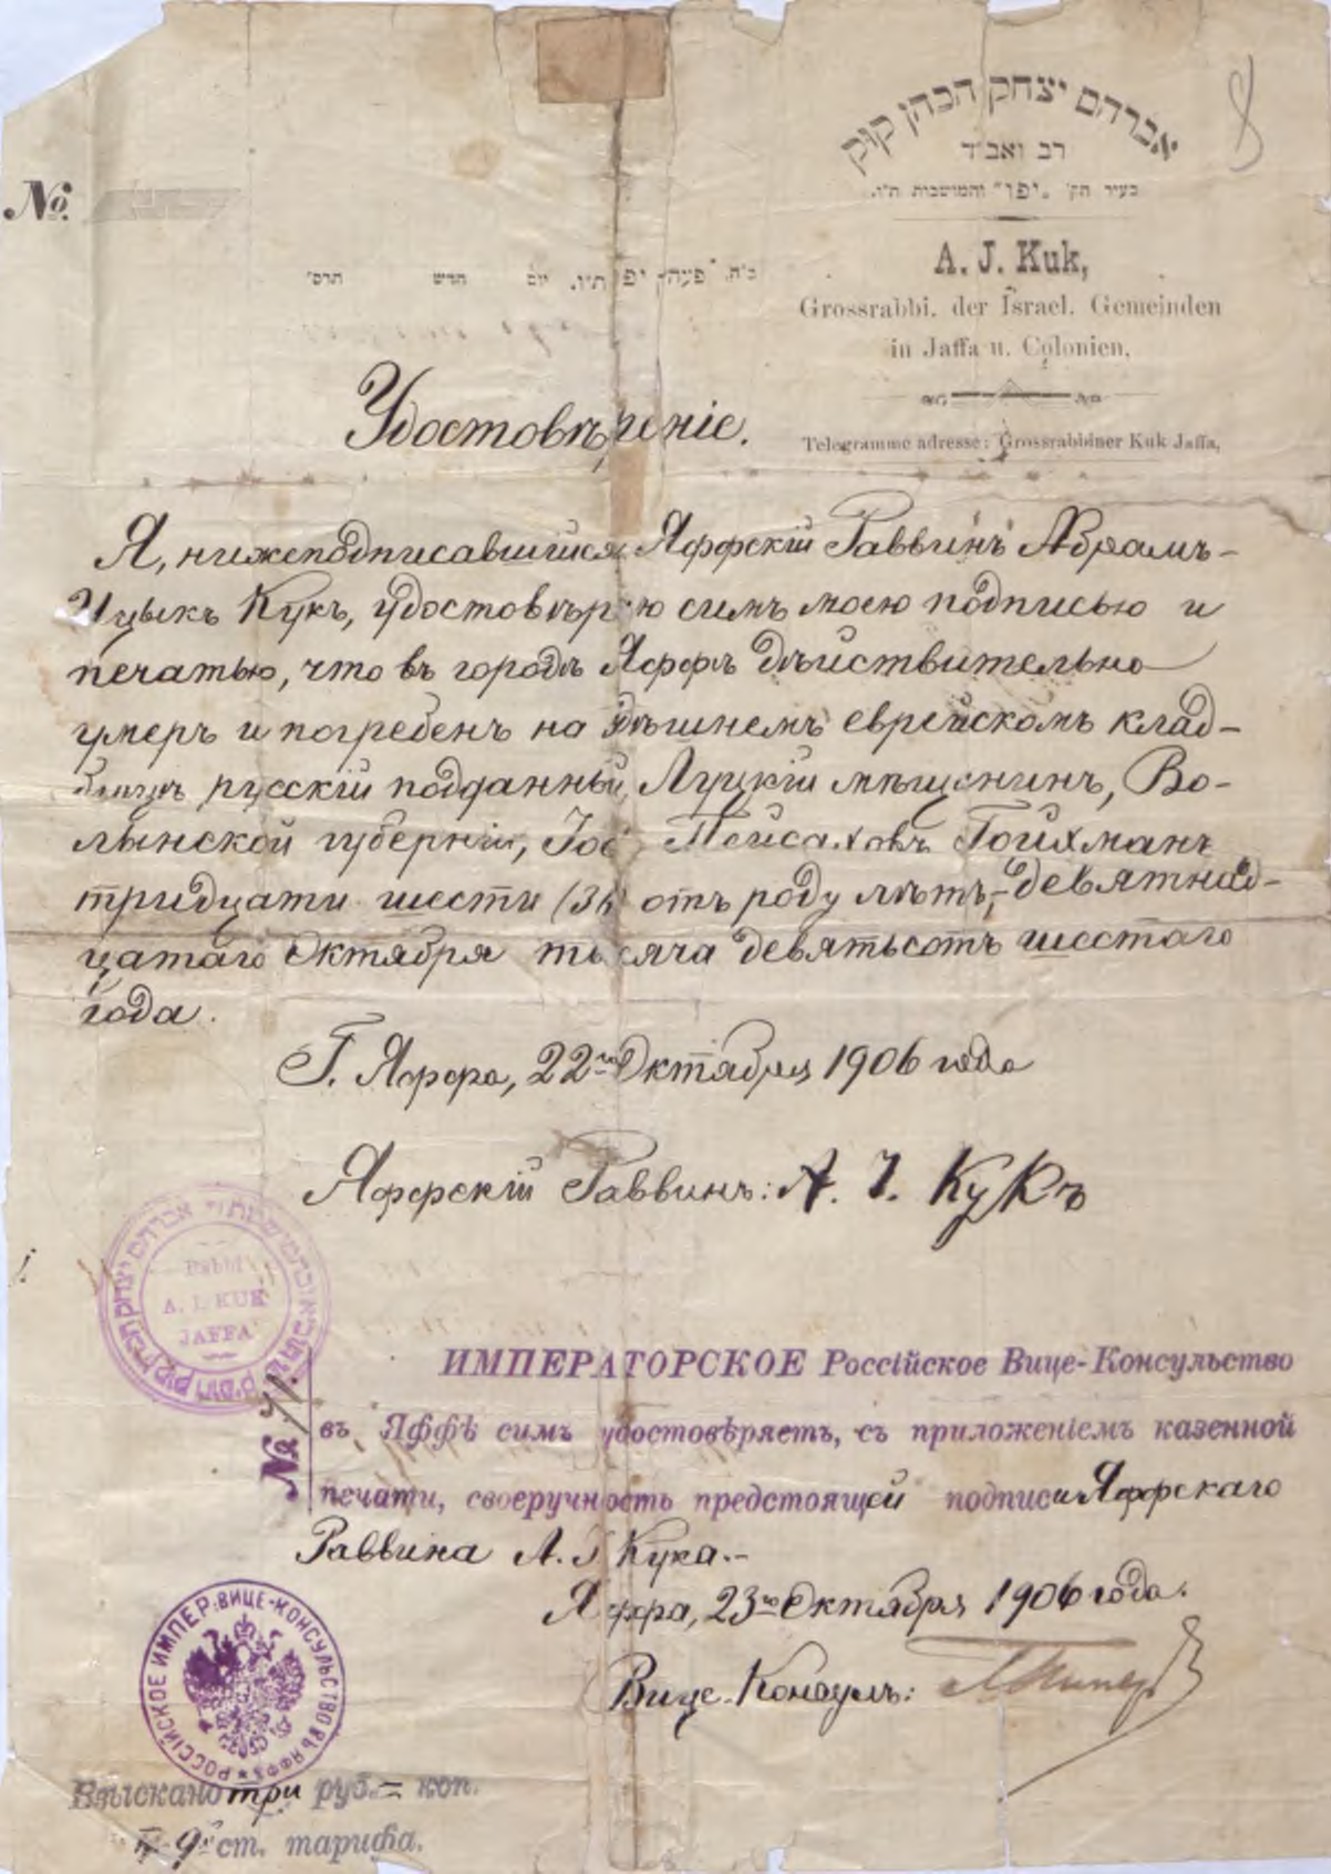 אברהם יצחק הכהן קוק
רב ואב״ד
בעיר הק׳ „יפו״ והמושבות ת״ו.
№
A. J. Kuk,
Grossrabbi. der Israel. Gemeinden
in Jaffa u. Colonien,
ב״ה, פעה״ק יפו ת״ו, יום חדש תרס״
Telegramme adresse: Grossrabbiner Kuk Jaffa,
Удостовѣреніе.
Я, нижеподписавшійся Яффскій Раввинъ Абрамъ-
Ицыкъ Кукъ, удостовѣряю симъ моею подписью и
печатью, что въ городѣ Яффѣ дѣйствительно
умеръ и погребенъ на здѣшнемъ еврейскомъ клад-
бищѣ русскій подданный, Луцкій мѣщанинъ, Во-
лынской губерніи, Іос Пейсаховъ Гойхманъ
тридцати шести (36) отъ роду лѣтъ, - девятнад-
цатаго Октября тысяча девятьсотъ шестаго
года.
Г. Яффа, 22го Октября 1906 года
Яффскій Раввинъ: А. І. Кукъ
Rabbi
A. I. KUK
JAFFA
אברהם יצחק הכהן קוק
ИМПЕРАТОРСКОЕ Россійское Вице-Консульство
въ Яффѣ симъ удостовѣряетъ, съ приложеніемъ казенной
печати, своеручность предстоящей подписи Яффскаго
Раввина А. І. Кука.-
№
Яффа, 23го Октября 1906 года.
Вице-Консулъ:
РОССІЙСКОЕ ИМПЕР. ВИЦЕ-КОНСУЛЬСТВО ВЪ ЯФФѢ
Взыскано три руб. = коп.
ст. тарифа.